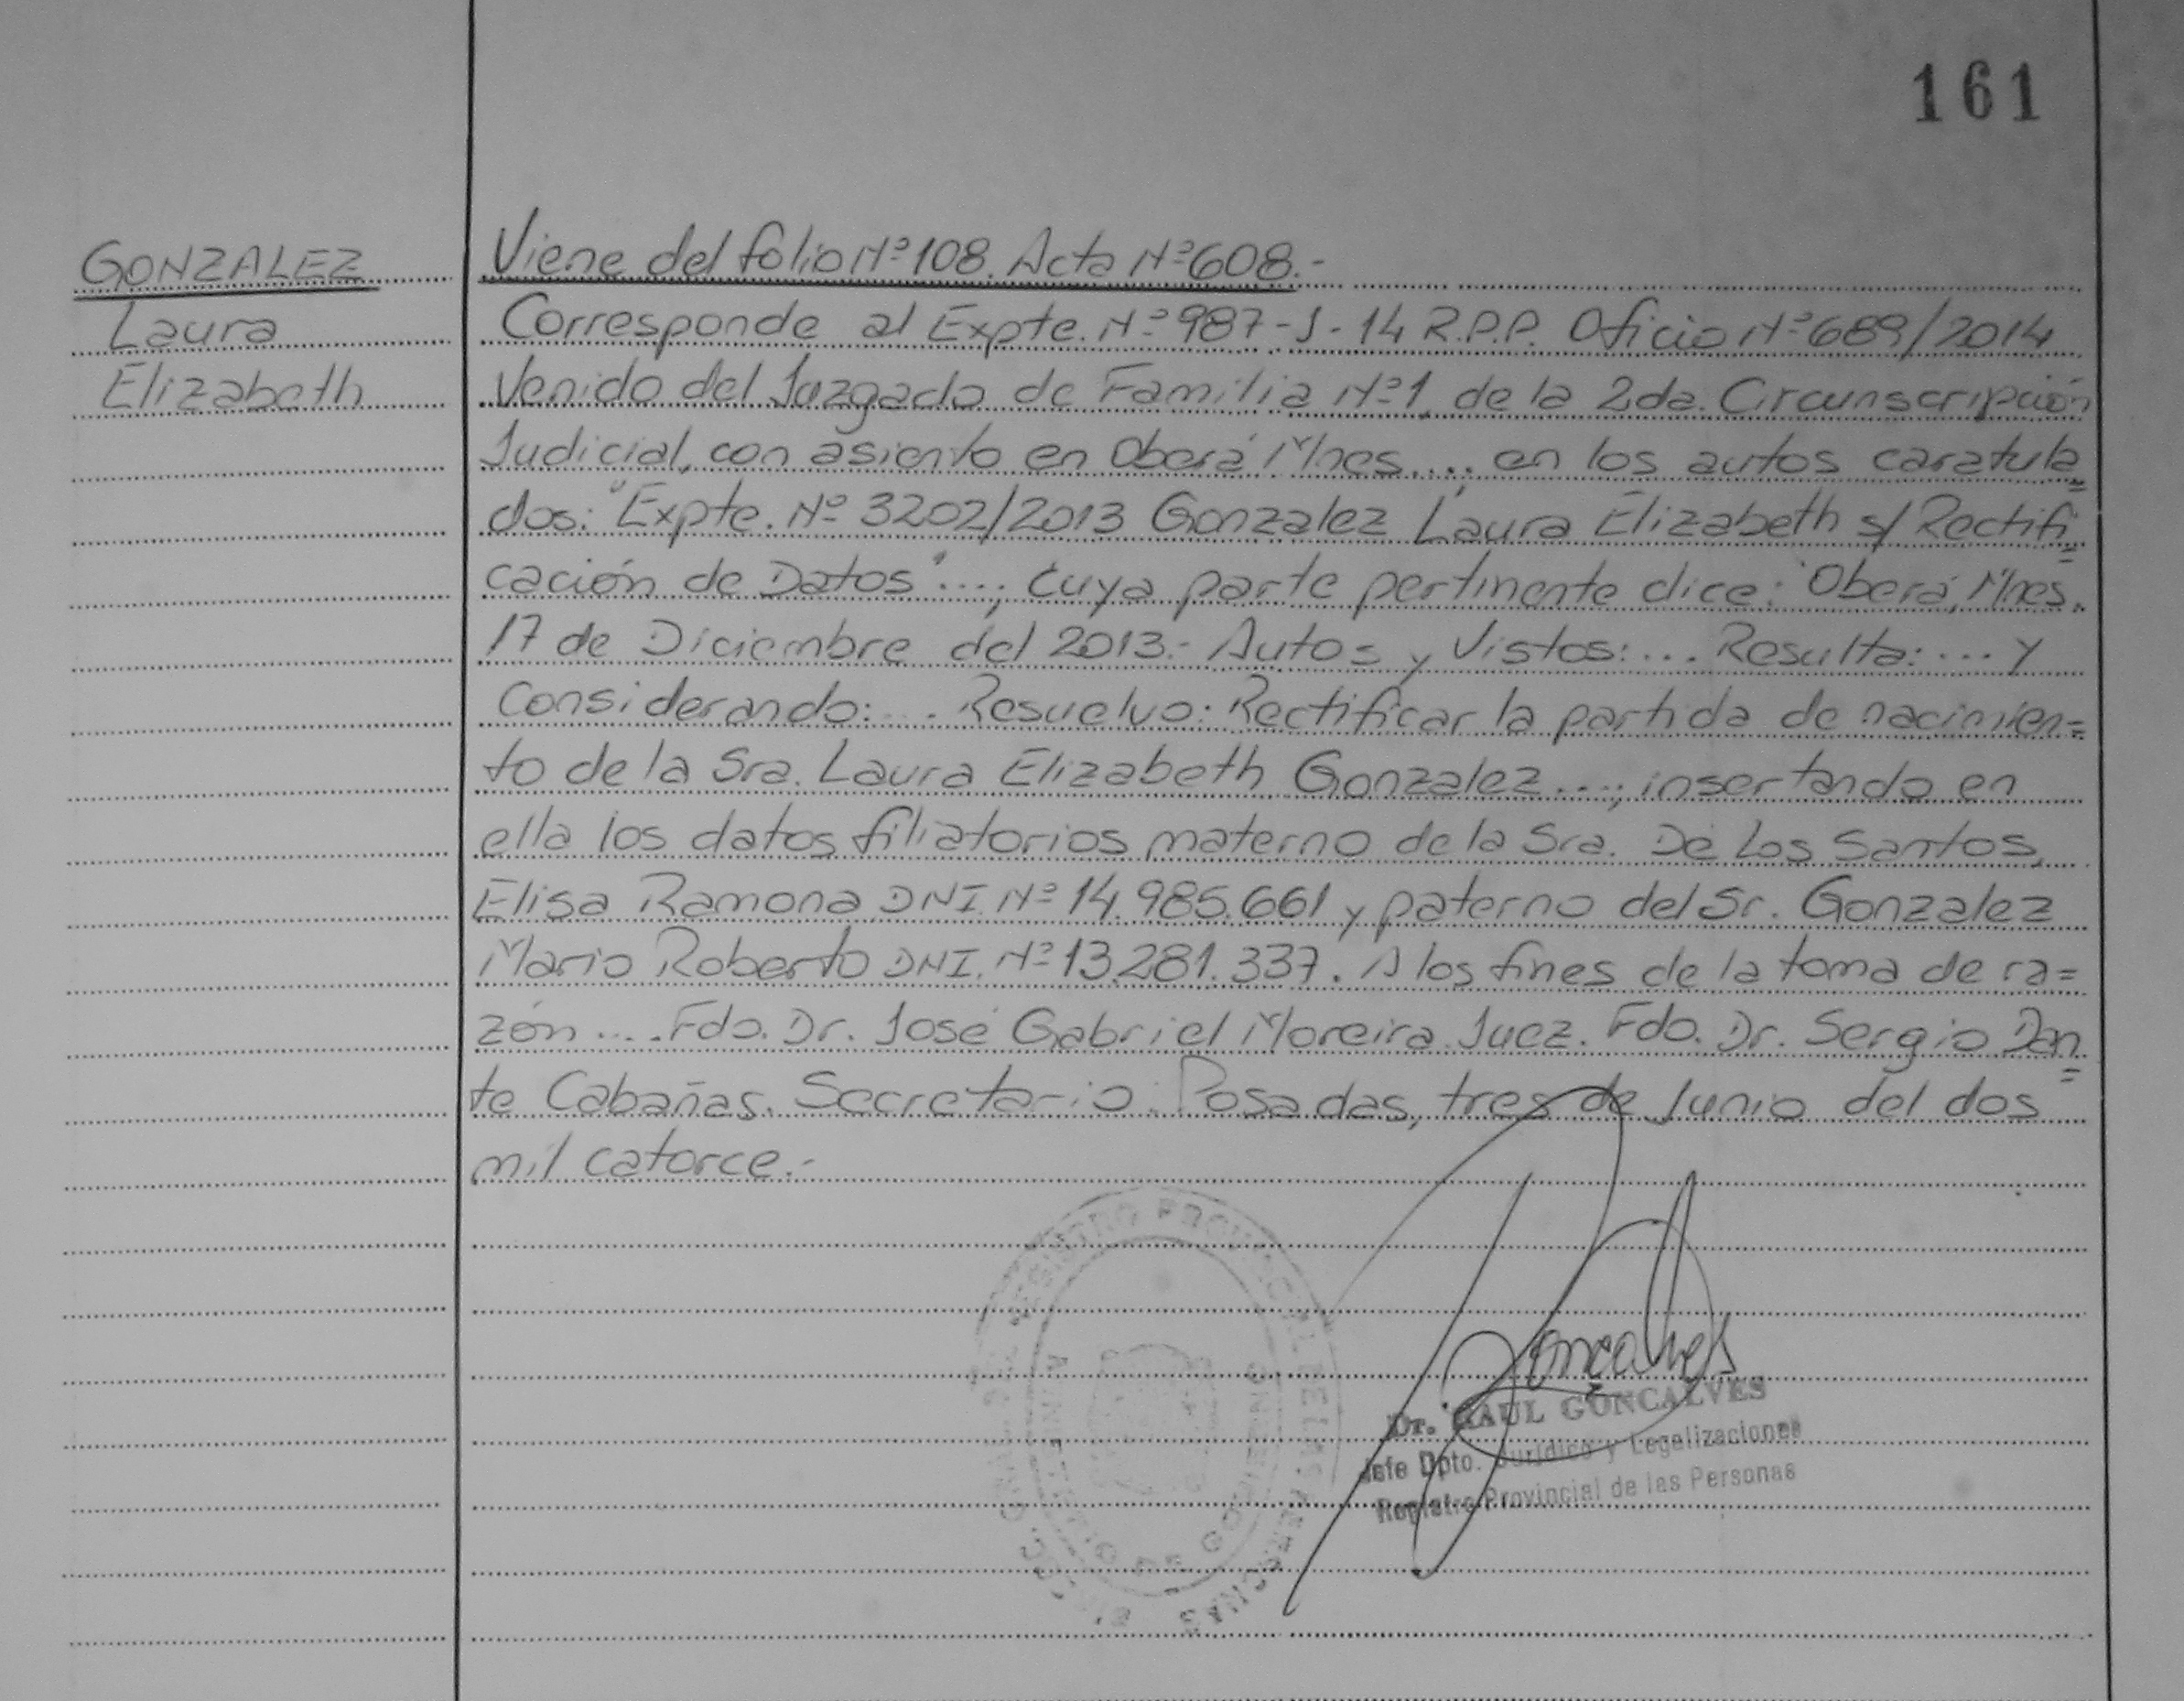 161
GONZALEZ
Laura
Elizabeth
Viene del folio Nº 108. Acta Nº 608.-
Corresponde al Expte. Nº 987-J-14 R.P.P. Oficio Nº 689/2014
Venido del Juzgado de Familia Nº 1, de la 2da. Circunscripción
Judicial, con asiento en Oberá Mnes.... en los autos caratula=
dos: "Expte. Nº 3202/2013 Gonzalez Laura Elizabeth s/ Rectifi=
cación de Datos"...; cuya parte pertinente dice: "Oberá, Mnes.
17 de Diciembre del 2013.- Autos y Vistos:... Resulta:... y
Considerando:... Resuelvo: Rectificar la partida de nacimien=
to de la Sra. Laura Elizabeth Gonzalez...; insertando en
ella los datos filiatorios materno de la Sra. De Los Santos,
Elisa Ramona DNI. Nº 14.985.661 y paterno del Sr. Gonzalez
Mario Roberto DNI. Nº 13.281.337. A los fines de la toma de ra=
zón .... Fdo. Dr. José Gabriel Moreira Juez. Fdo. Dr. Sergio Dan=
te Cabañas. Secretario. Posadas, tres de Junio del dos
mil catorce.-
REGISTRO PROVINCIAL DE LAS PERSONAS
Gonçalves
Dr. RAUL GONCALVES
Jefe Dpto. Jurídico y Legalizaciones
Registro Provincial de las Personas